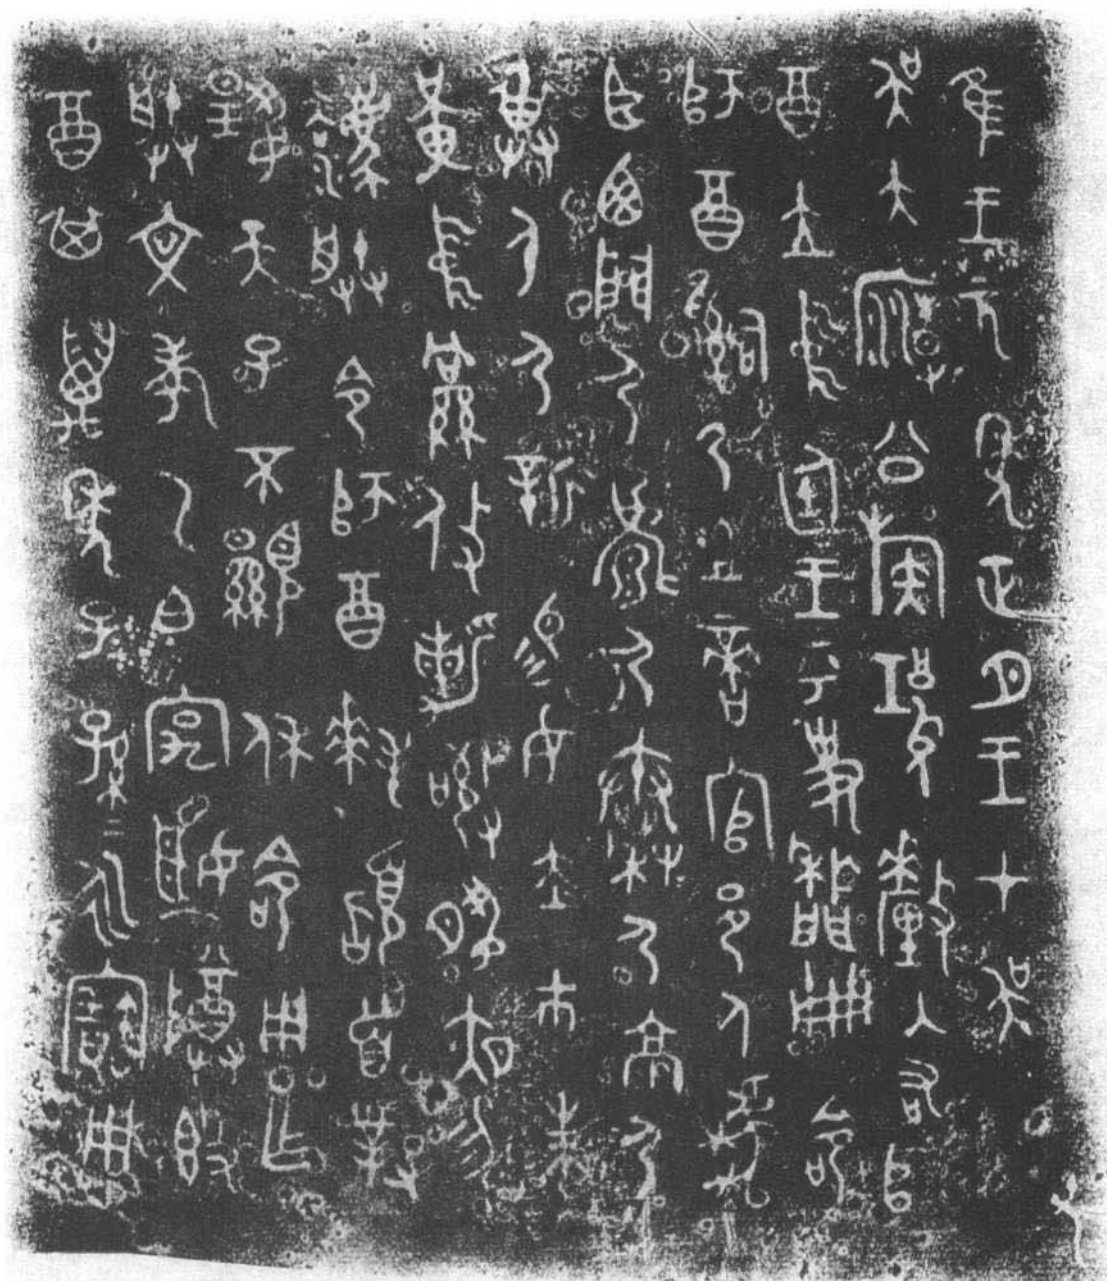 隹王元年正月王才吳
吳大廟公族釐入右師
酉立中廷王乎史冊命
師酉𤔲乃且啻官邑人虎
臣西門尸尸秦尸京尸
身尸新易女赤市朱
黃中攸勒敬夙夜勿
灋朕令師酉拜𩒨首對
揚天子不顯休命用乍
朕文考乙白宄姬尊𣪘
酉其萬年子子孫孫永寶用